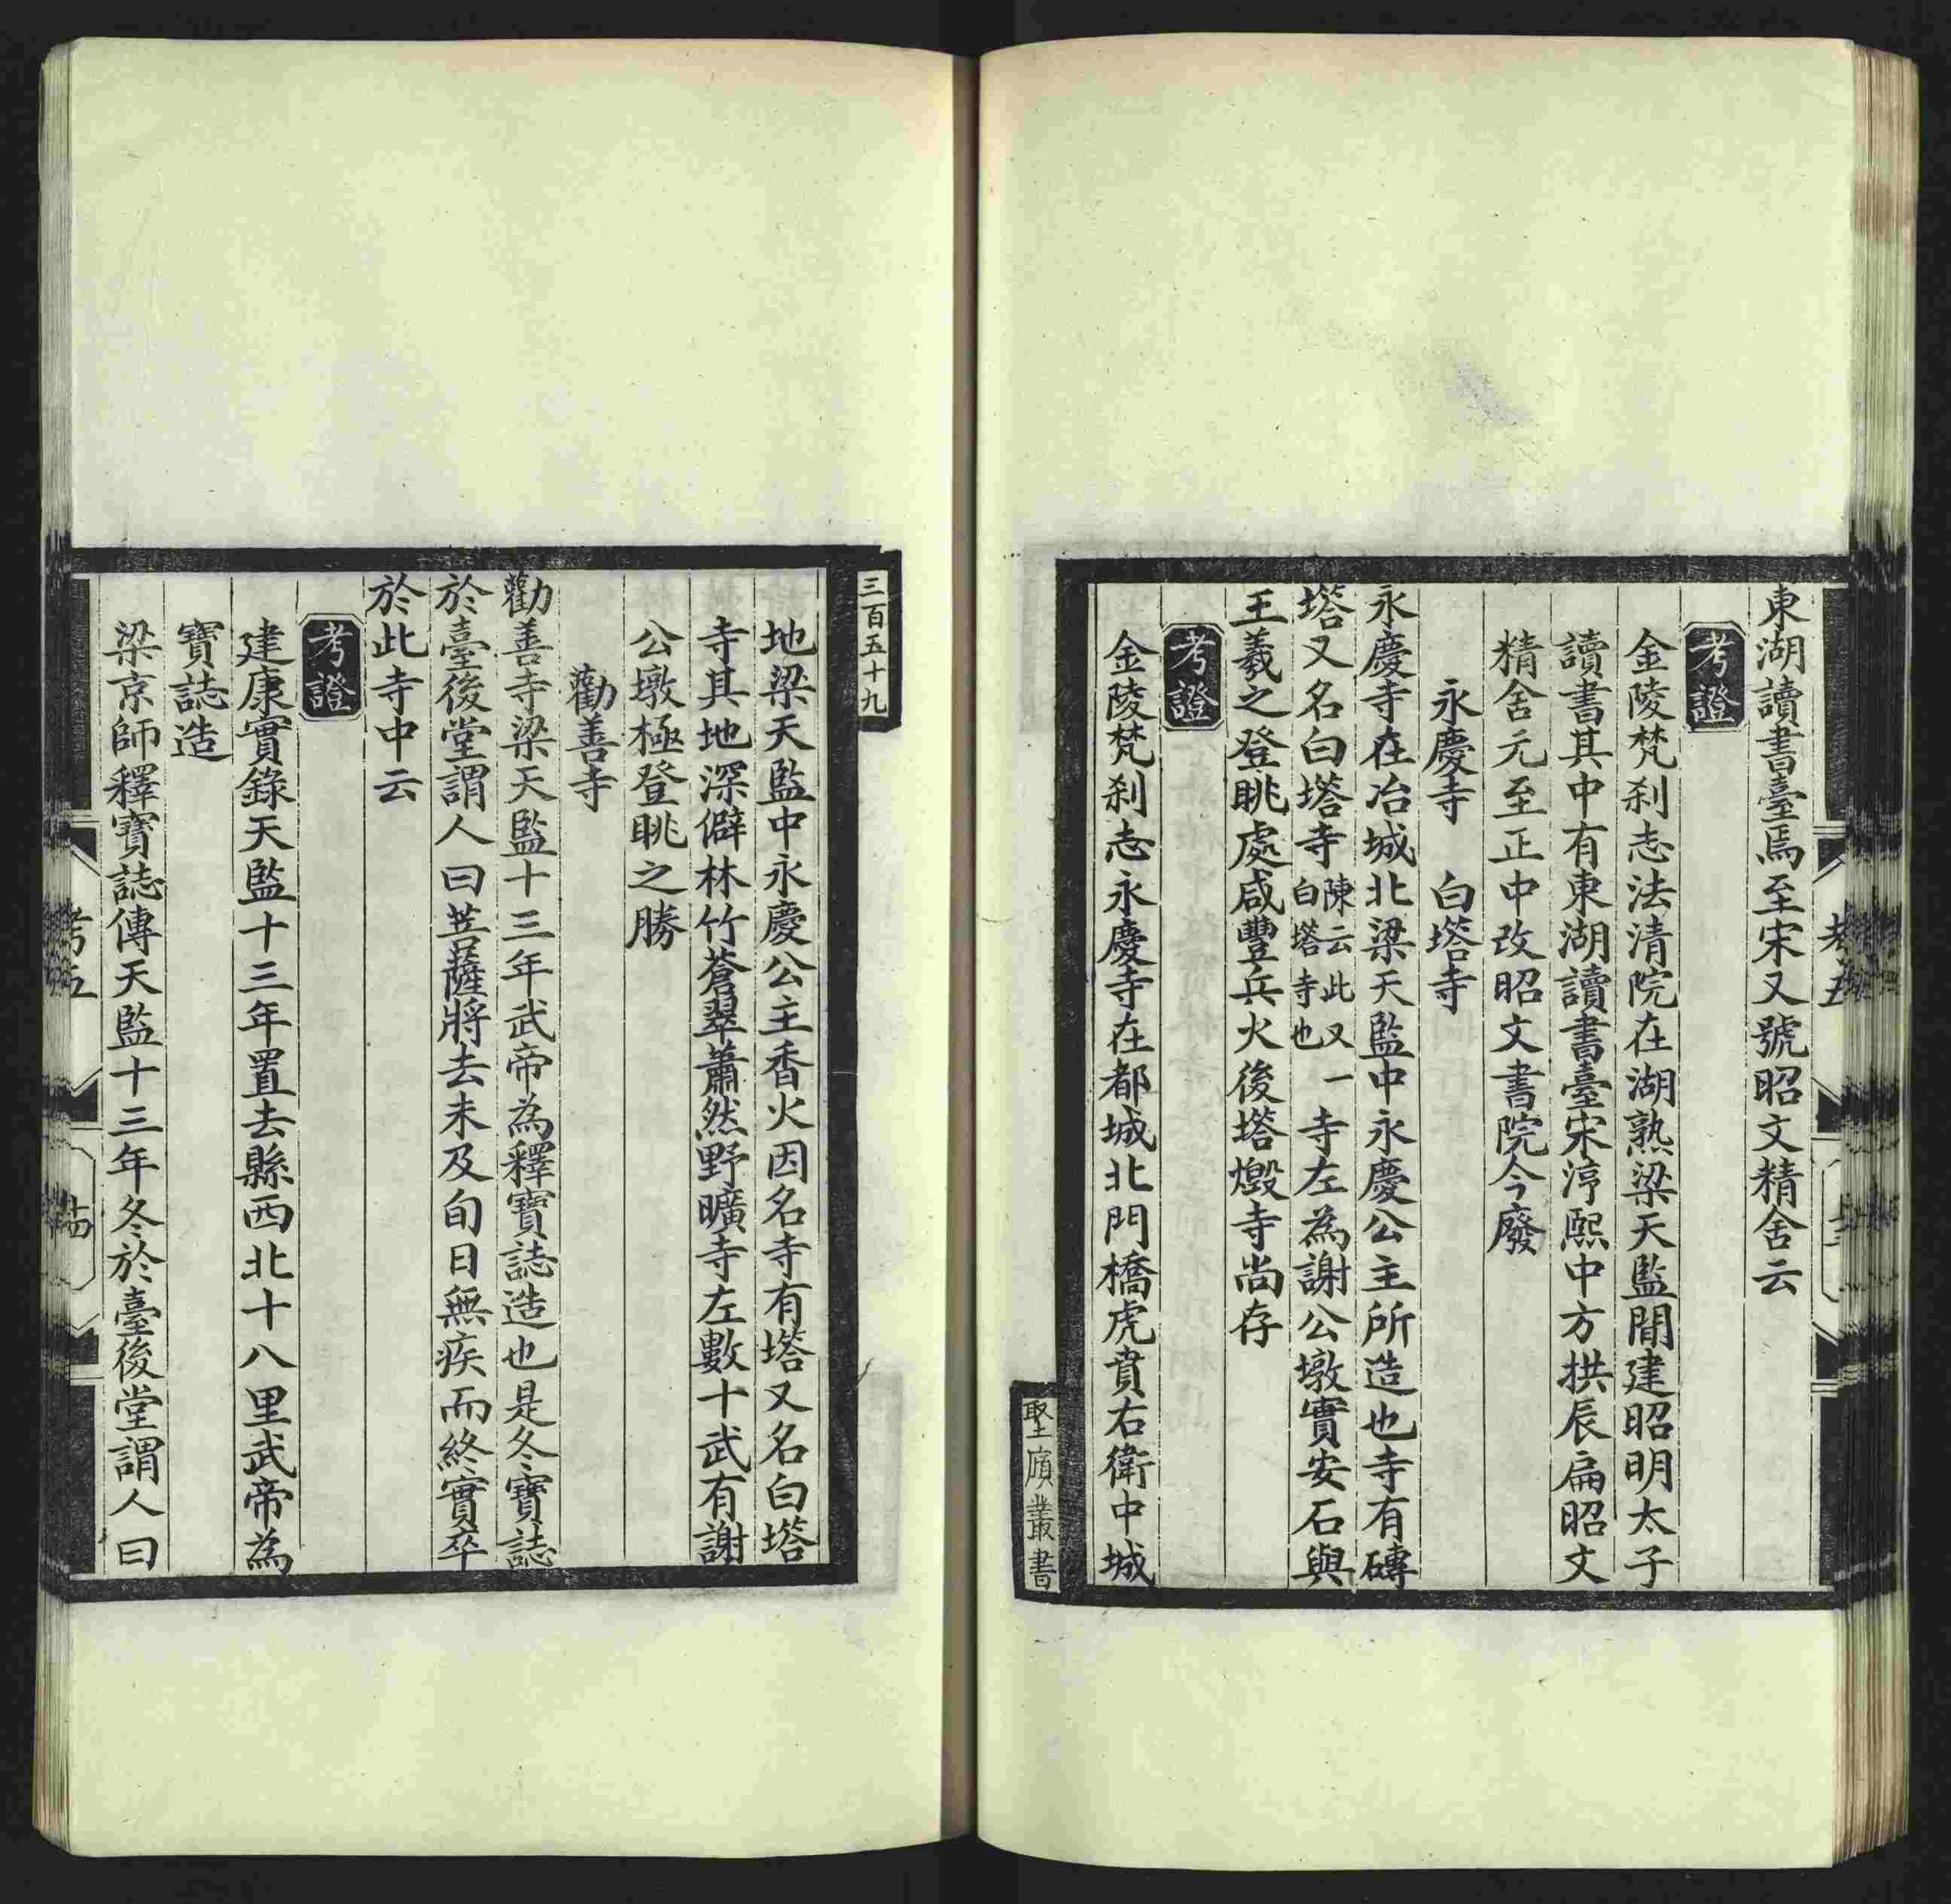 東湖讀書臺焉至宋又號昭文精舍云
考證
金陵梵刹志法清院在湖熟梁天監閒建昭明太子
讀書其中有東湖讀書臺宋淳熙中方拱辰扁昭文
精舍元至正中改昭文書院今廢
永慶寺　白塔寺
永慶寺在冶城北梁天監中永慶公主所造也寺有磚
塔又名白塔寺陳云此又一白塔寺也寺左為謝公墩實安石與
王羲之登眺處咸豐兵火後塔燬寺尚存
考證
金陵梵刹志永慶寺在都城北門橋虎賁右衛中城
聖廎叢書
三百五十九
地梁天監中永慶公主香火因名寺有塔又名白塔
寺其地深僻林竹蒼翠蕭然野曠寺左數十武有謝
公墩極登眺之勝
勸善寺
勸善寺梁天監十三年武帝為釋寶誌造也是冬寶誌
於臺後堂謂人曰菩薩將去未及旬日無疾而終實卒
於此寺中云
考證
建康實錄天監十三年置去縣西北十八里武帝為
寶誌造
梁京師釋寶誌傳天監十三年冬於臺後堂謂人曰
考五